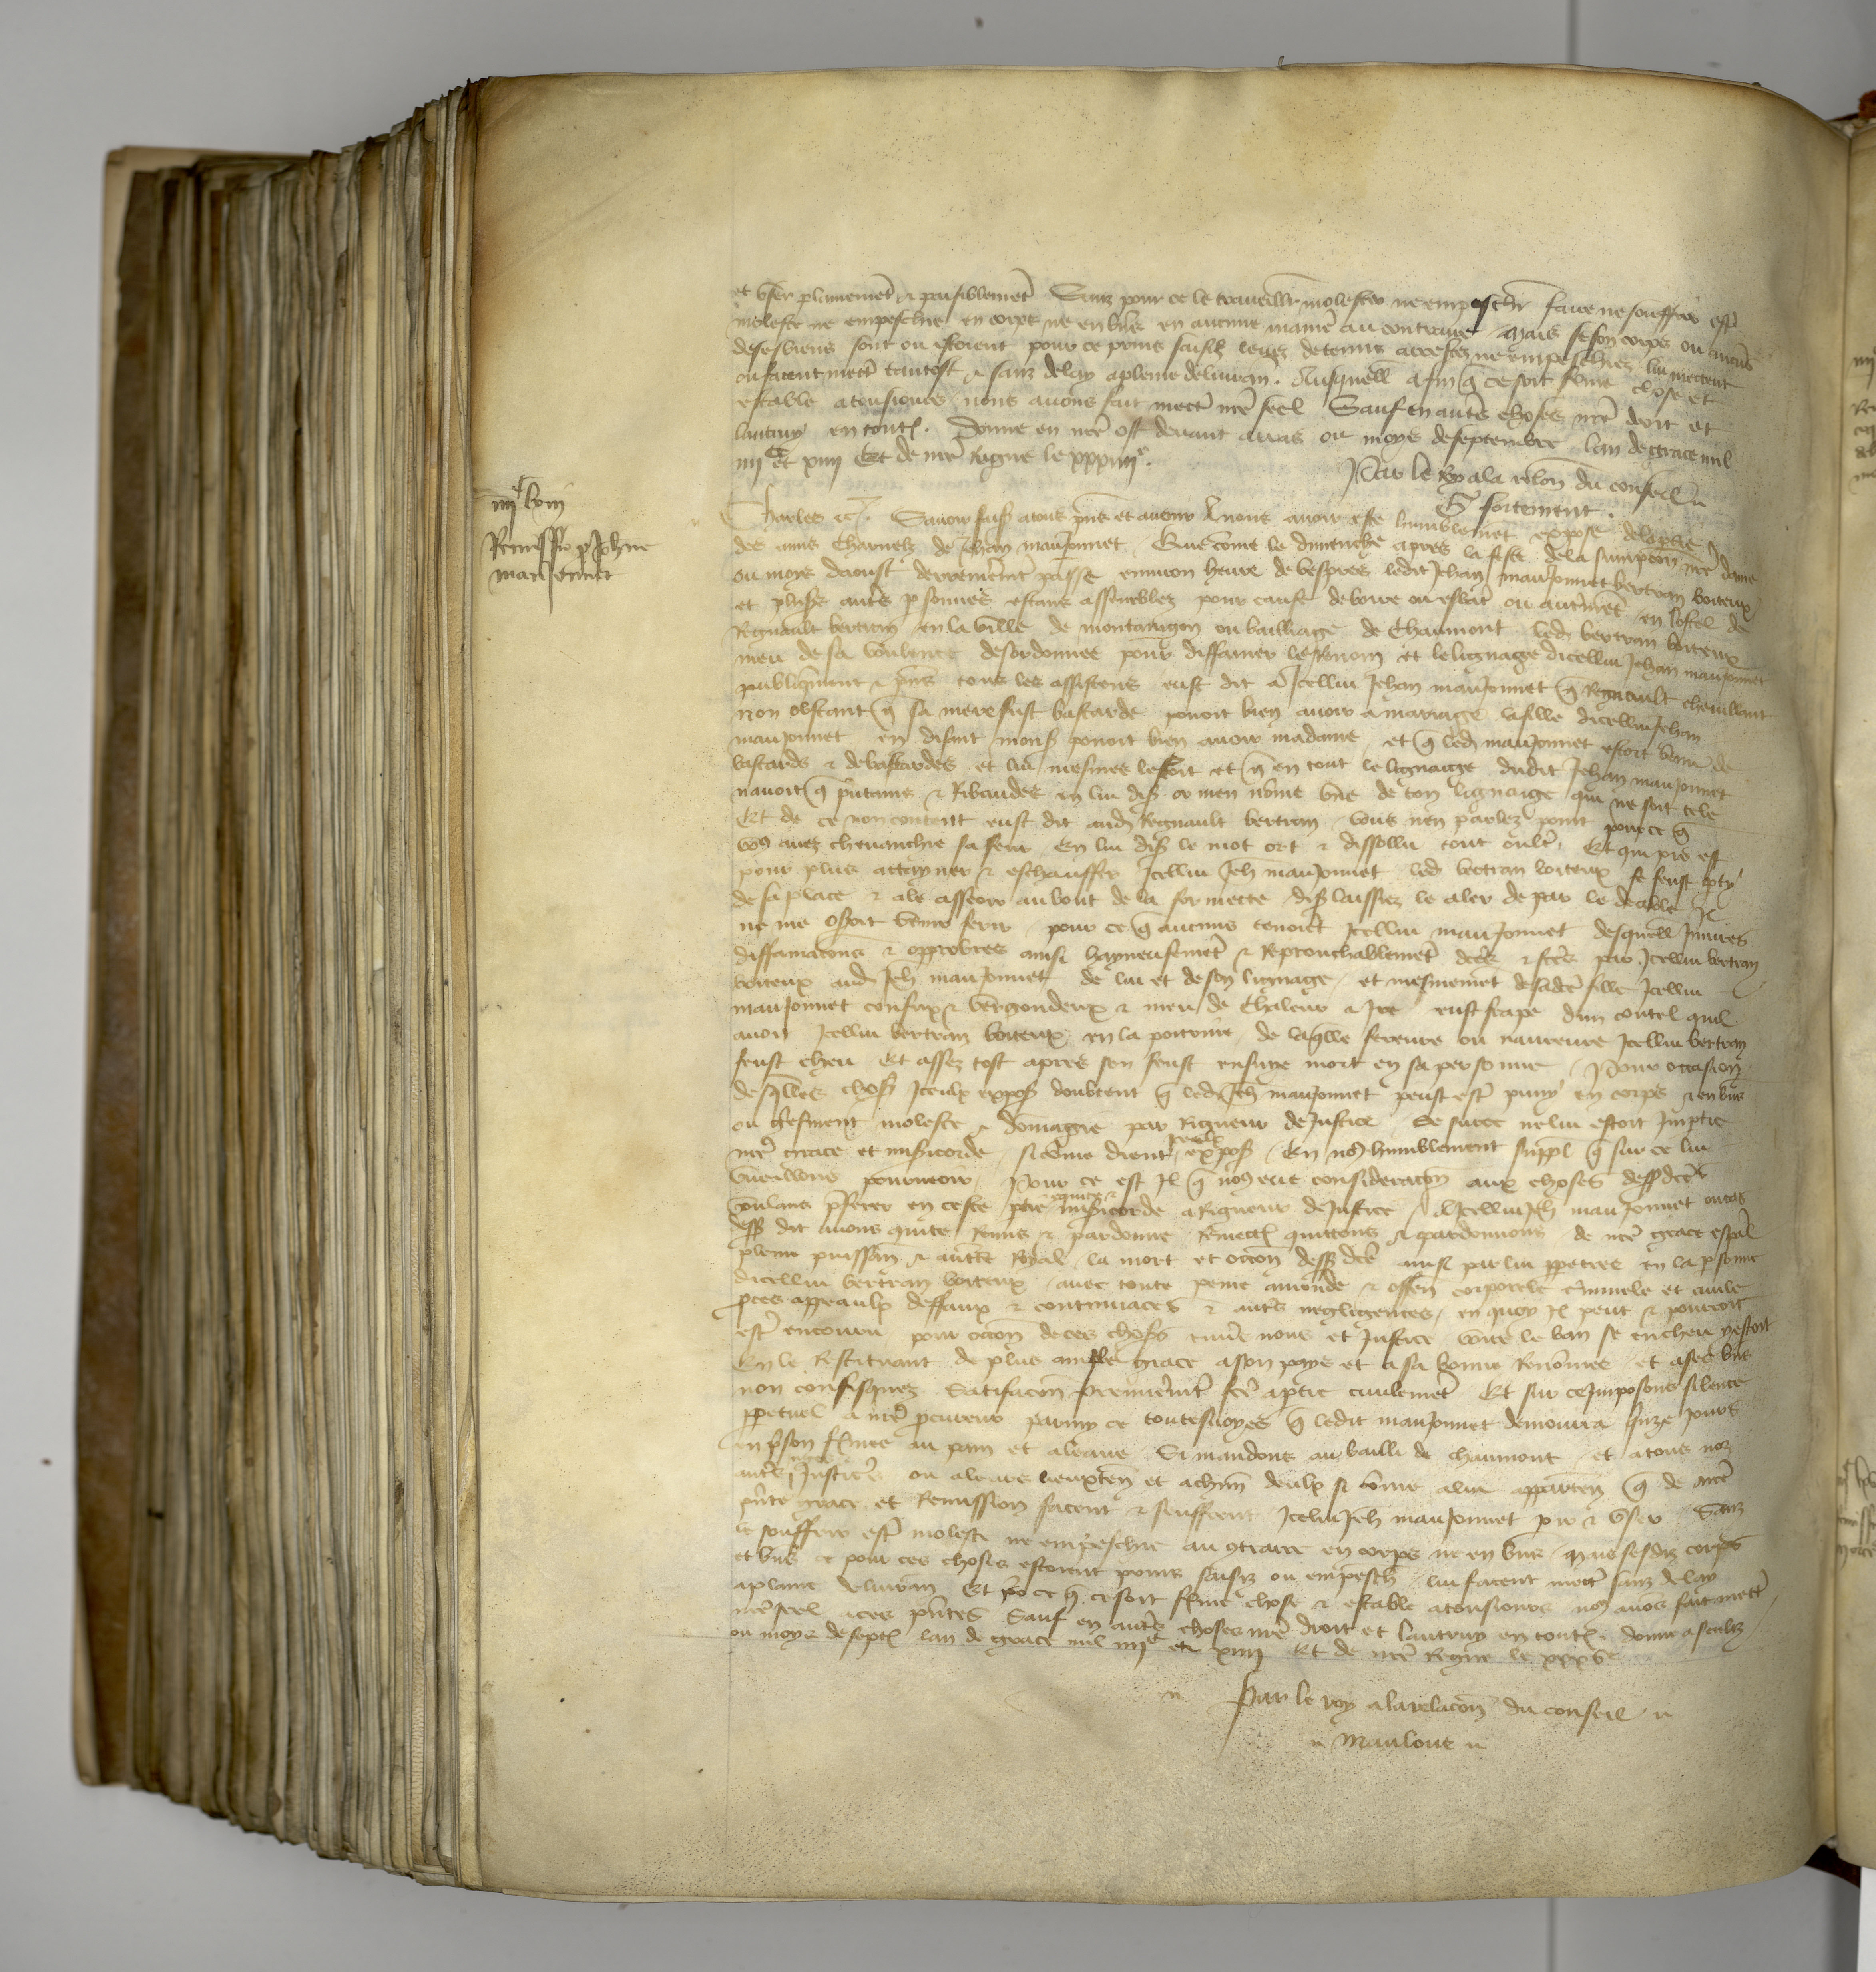 et user plainemēt & paisiblemēt Sanz pour ce le travaillr molester ne empeschr faire ne souffrir estr
moleste ne empeschie en corps ne en biēs en aucune manie au contraire Mais se son corps ou aucūs
de ses biens sont ou estoient pour ce prins saisiz levez detenus arrestez ne empeschiez lui mectent
ou facent mectr tantost & sanz delay a pleine delivran. Ausquell afin q ce soit ferme chose et
estable a tousiours nous avons fait mectr nre seel Sauf en autrs choses nre droit et
lautruy en toutes. Donne en nre ost devant arras ou moys de septembre lan de grace mil
iiiic et xiiii Et de nre Regne le xxxiiiie.
Par le Roy a la relōn du conseil
G fortement.
iiiic lviii
Remissio p Johne
maujonnet
Charles etc. Savoir fais a tous pns et avenir Nous avoir este humblemēt expose de la ptie
des amis charnelz de Jehan maujonnet Que cōme le dimenche apres la feste de la sumpcōn nre dame
ou moys daoust derrenieremt passe environ heure de vespres ledit Jehan maujonnet bertran boiteux
et plusrs autrs psonnes estans assemblez pour cause de boire ou esbatr ou autmēt en lostel de
Regnault bertran en la ville de montarugon ou bailliage de Chaumont led bertran boiteux
meu de sa voulente desordonnee pour diffamer le renom et le lignage dicellui Jehan maujonnet
publiqmēnt & pns tous les assistens eust dit a Icellui Jehan maujonnet q Regnault chevillart
non obstant q sa mere fust bastarde povoit bien avoir a mariage la fille dicellui Jehan
maujonnet en disant mons povoit bien avoir madame et q led maujonnet estoit venu de
bastards & de bastardes et lui mesmes lestoit et q en tout le lignaige dudit Jehan maujonnet
navoit q putains & Ribaudes en lui dis or men nōme une de ton lignaige qui ne soit tele
Et de ce non content eust dit aud Regnault bertran vous nen parlez point pour ce q
vo avez chevauchie sa seur En lui dis le mot ort & dissollu tout oultr Et qui pis est
pour plus actayner & eschauffer Icellui Jeh maujonnet led bertran boiteux se feust pty
de sa place & ale asseoir au bout de la formecte dis laissiez le aler de par le deable Il
ne me oseroit venir ferir pour ce q aucuns tenoiēt Icellui maujonnet desquell Iniures
diffamacōns & opprobres ainsi hayneusemēt & Reprouchablemēt dctes & fctes par Icellui bertran
boiteux aud Jeh maujonnet de lui et de son lignage et mesmemēt de sadcte fille Icellui
maujonnet confux & vergondeux & meu de Chaleur & Ire eust frape dun coutel quil
avoit Icellui bertran boiteux en la poictrine de laqlle fereure ou navreure Icellui bertran
feust cheu Et assez tost apres sen feust ensuye mort en sa personne Pour occasion
desqlles choss Iceulx expos doubtent q led Jeh maujonnet peust estr puny en corps & en biēs
ou aspment moleste & dōmagie par Rigueur de Justice Se sur ce ne lui estoit Imptie
nre grace et misicorde si cōme dient Iceulx expos En no humblement suppl q sur ce lui
vueillons pourveoir Pour ce est Il q no eue consideracōn aux choses dessdctes
voulans pferer en ceste ptie equite & misericorde a Rigueur de Justice A Icellui Jeh maujonnet ou cas
dess dit avons quite Remis & pardonne Remectons quittons & pardonnons de nre grace espal
plaine puissan & auctte Royal la mort et occōn dess dcte ainsi par lui ppetree en la psonne
dicellui bertran boiteux avec toute peine amende & offen corporele criminele et civile
pces appeaulx deffaux & contumaces & autrs negligences en quoy Il peut & pourroit
estr encouru pour occōn de ces choses envers nous et Justice voire le ban se encheu y estoit
En le Restituant de plus ample grace a son pays et a sa bonne Renōmee et a ses biēs
non confisquez Satisfacōn premieremt fcte a ptie civilemēt Et sur ce Imposons silence
ppetuel a nre pcureur parmy ce toutesvoyes q ledit maujonnet demourra quze jours
en prison fermee au pain et a leaue Si mandons au bailli de chaumont et a tous noz
autrs Justicrs ou a leurs lieuxten et a chūn deulx si cōme a lui apparten q de nre
pnte grace et Remission facent & seuffrent Icelui Jeh maujonnet joir & user Sanz
le souffrir estr moleste ne empeschie au gtraire en corps ne en biēs mais se sesdiz corps
et biēs ce pour ces choses estoient prins saisiz ou empesch lui facent mectr sanz delay
a plaine delivran Et po ce q ce soit ferme chose & estable a tousiours no avōs fait mettr
nre seel a ces pntes Sauf en autrs choses nre droit et lautruy en toutes. donne a senliz
ou moys de sept lan de grace mil iiiic et xiiii Et de nre Regne le xxxve
Par le roy a la relacōn du conseil
Mauloue